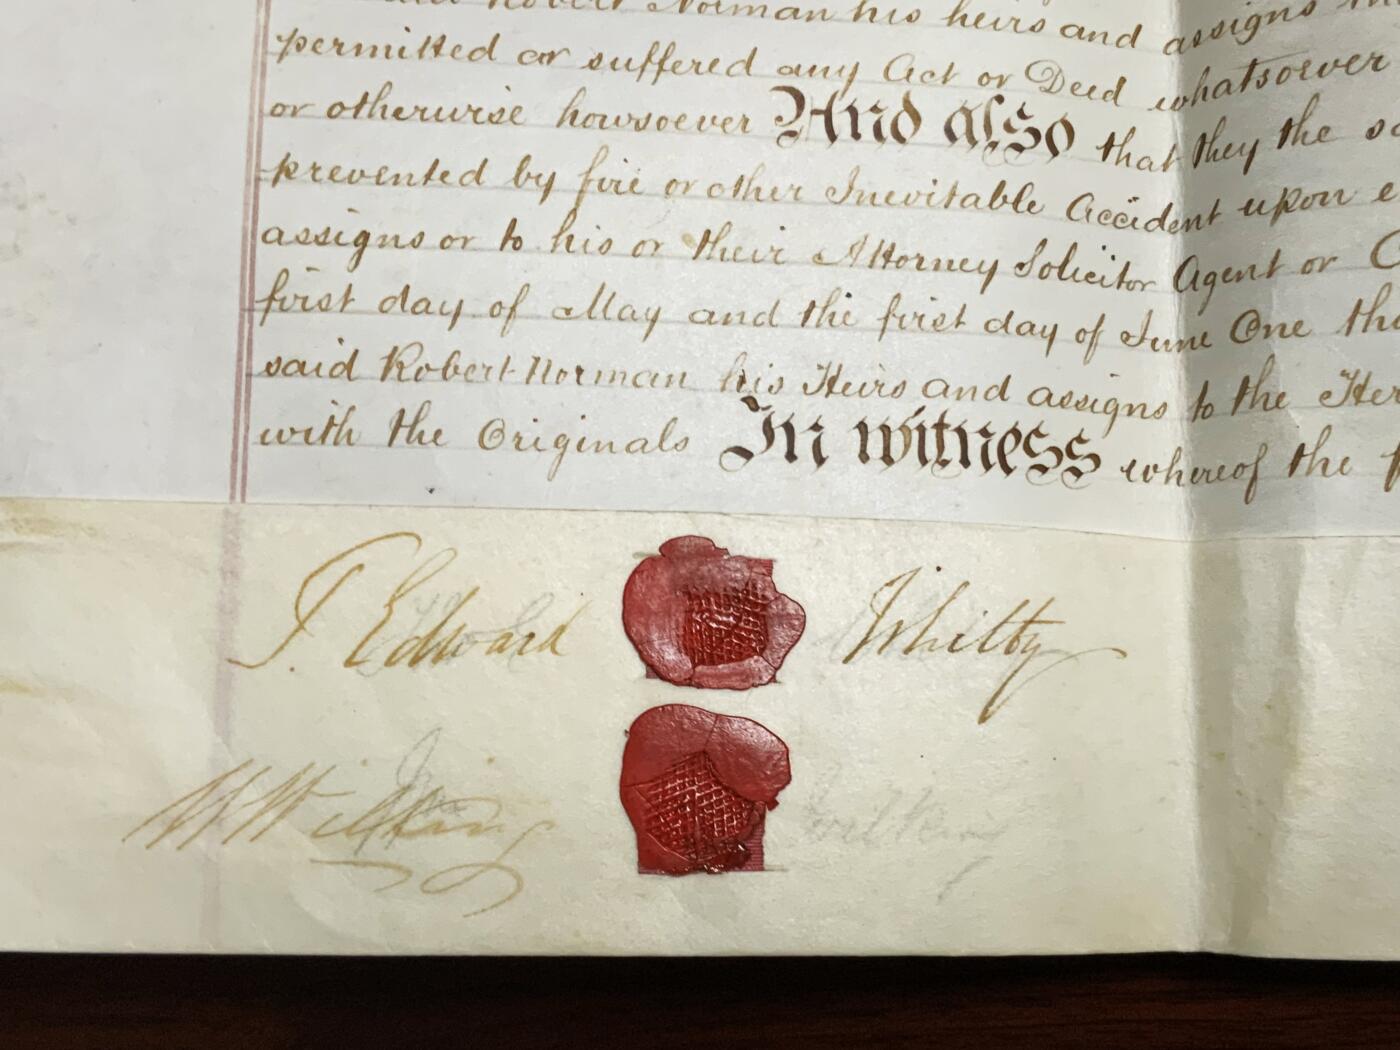 Robert Norman his heirs and assigns
permitted or suffered any Act or Deed whatsoever
or otherwise howsoever And also that they the
prevented by fire or other Inevitable Accident upon
assigns or to his or their Attorney Solicitor Agent or
first day of May and the first day of June One
said Robert Norman his Heirs and assigns to the
with the Originals In witness whereof the
T. Edward Whitty
W Wilking